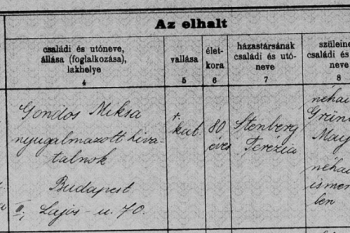 Az elhalt
családi és utóneve, állása (foglalkozása), lakhelye
vallása
élet-kora
házastársának családi és utó-neve
szüleine családi és neve
4
5
6
7
8
Gondos Miksa
nyugalmazott hiva-
talnok
Budapest
II, Lajos-u. 70.
r.
kath.
80
éves
Stenberg
Terézia
néhai
néhai
ismer
ben